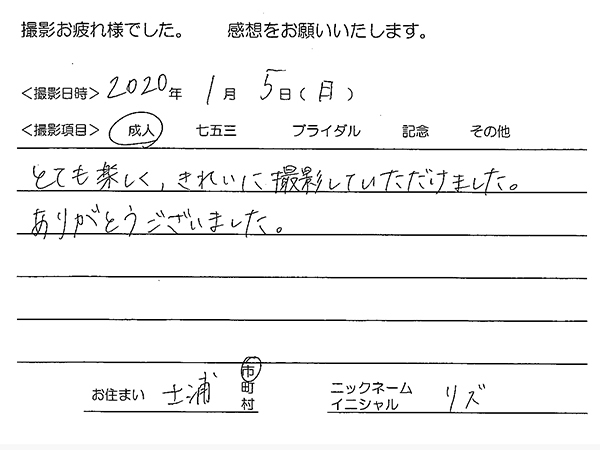 撮影お疲れ様でした。 感想をお願いいたします。
<撮影日時> 2020年 1月 5日(日)
<撮影項目> 成人 七五三 ブライダル 記念 その他
とても楽しく、きれいに撮影していただけました。
ありがとうございました。
お住まい 土浦 市町村 ニックネーム イニシャル リズ